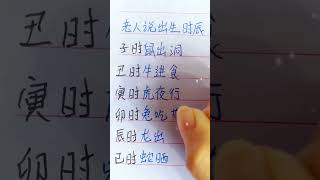 老人说出生时辰
子时鼠出洞
丑时牛进食
寅时虎夜行
卯时兔吃
辰时龙出
巳时蛇晒
丑时
寅时
卯时